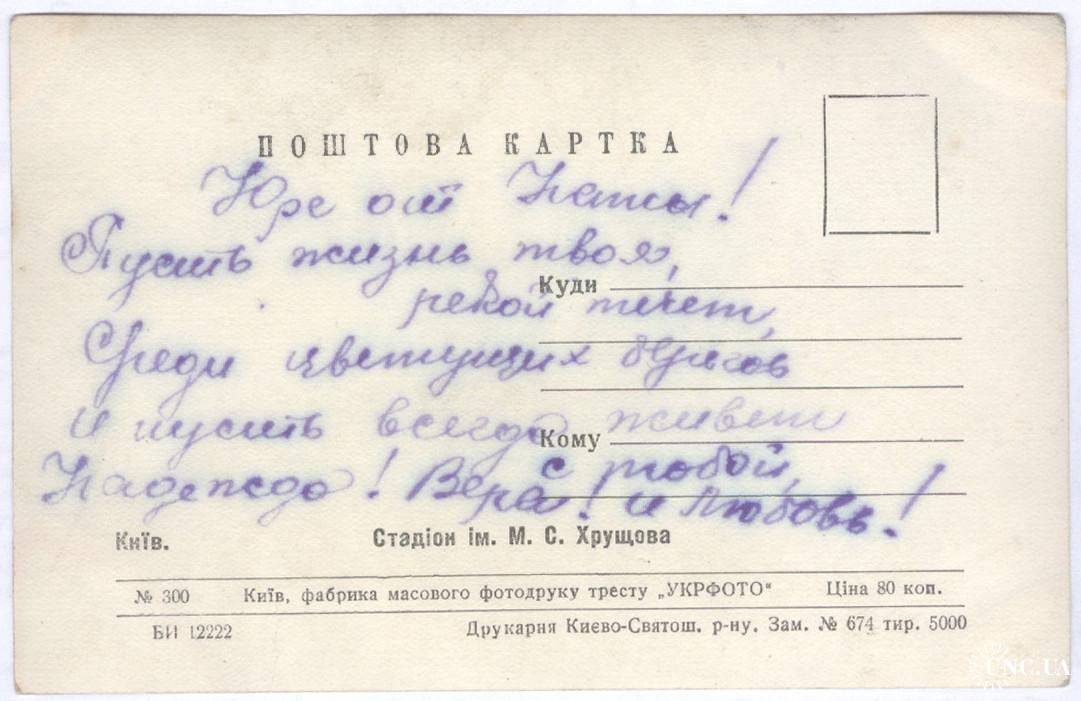 ПОШТОВА КАРТКА
Юре от Наты!
Пусть жизнь твоя,
Куди
рекой течет,
Среди цветущих берегов
и пусть всегда живет
Кому
с тобой,
Надежда! Вера! и Любовь!
Київ.
Стадіон ім. М. С. Хрущова
№ 300
Київ, фабрика масового фотодруку тресту „УКРФОТО“
Ціна 80 коп.
БИ 12222
Друкарня Києво-Святош. р-ну. Зам. № 674 тир. 5000
UNC.UA